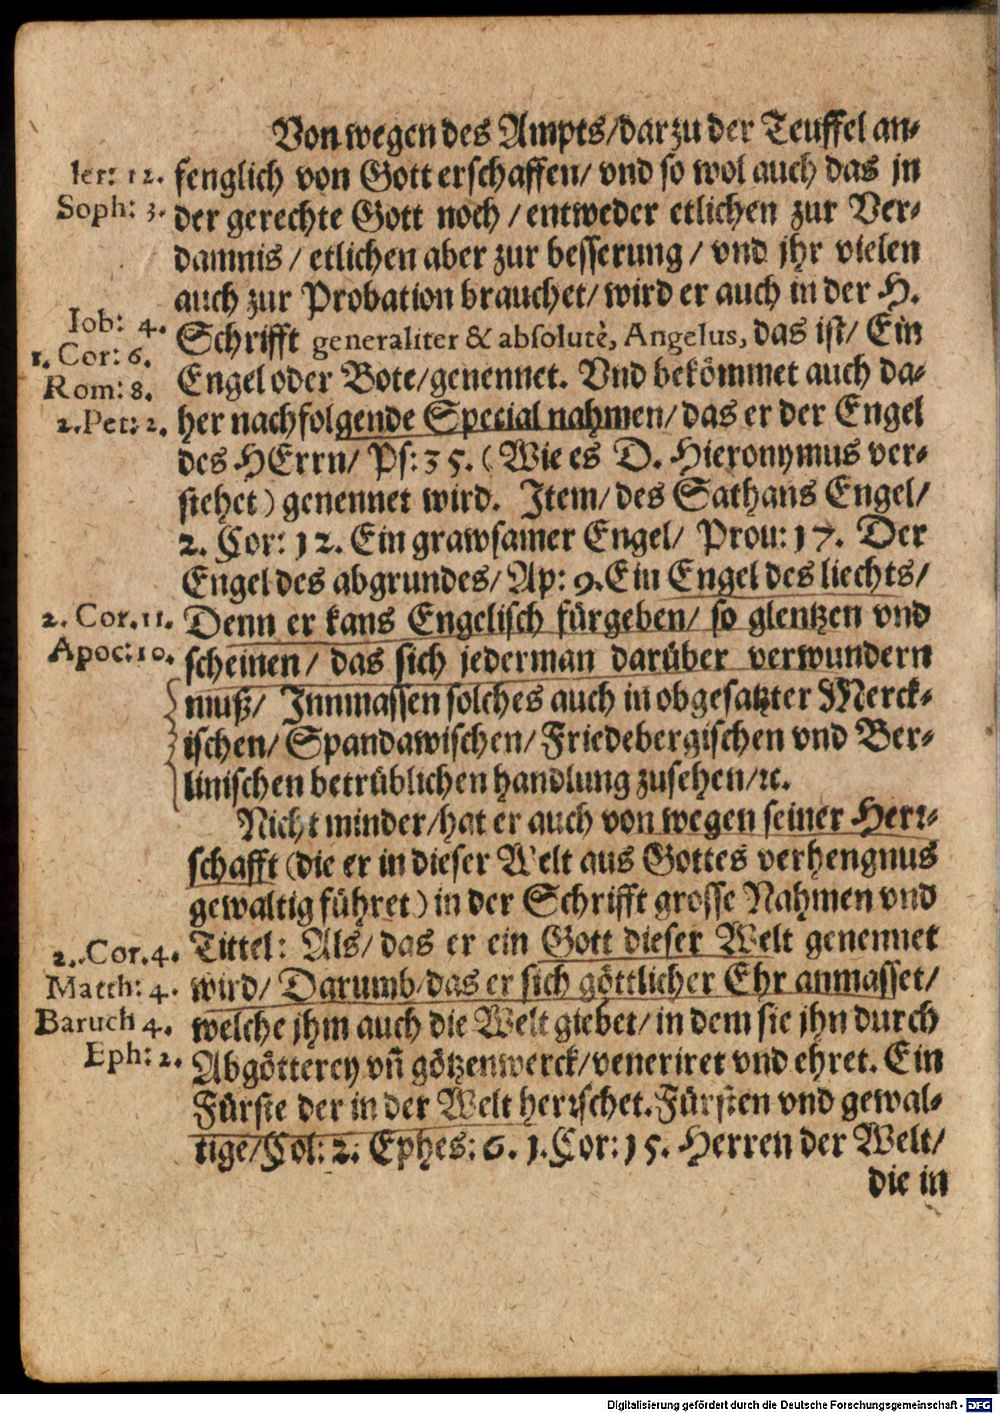 Von wegen des Ampts/darzu der Teuffel an-
Ier: 12. fenglich von Gott erschaffen/ vnd so wol auch das jn
Soph: 3. der gerechte Gott noch / entweder etlichen zur Ver-
damnis / etlichen aber zur besserung / vnd jhr vielen
auch zur Probation brauchet/ wird er auch in der H.
Iob: 4. Schrifft generaliter & absolutè, Angelus, das ist/ Ein
1. Cor: 6. Engel oder Bote/genennet. Vnd bekömmet auch da-
Rom: 8.
2.Pet: 2. her nachfolgende Special nahmen/ das er der Engel
des HErrn/ Ps: 35. (Wie es D. Hieronymus ver-
stehet) genennet wird. Item/ des Sathans Engel/
2. Cor: 12. Ein grawsamer Engel/ Prou: 17. Der
Engel des abgrundes/ Ap: 9. Ein Engel des liechts/
2. Cor. 11. Denn er kans Engelisch fürgeben/ so glentzen vnd
Apoc: 10. scheinen/ das sich jederman darüber verwundern
muß/ Innmassen solches auch in obgesatzter Merck-
ischen/ Spandawischen/ Friedebergischen vnd Ber-
linischen betrüblichen handlung zusehen/ꝛc.
Nicht minder/hat er auch von wegen seiner Herr-
schafft (die er in dieser Welt aus Gottes verhengnus
gewaltig führet) in der Schrifft grosse Nahmen vnd
2. Cor. 4. Tittel: Als/ das er ein Gott dieser Welt genennet
Matth: 4. wird/ Darumb/das er sich göttlicher Ehr anmasset/
Baruch 4. welche jhm auch die Welt giebet/ in dem sie jhn durch
Eph: 2. Abgötterey vn̄ götzenwerck/veneriret vnd ehret. Ein
Fürste der in der Welt herrschet. Fürsten vnd gewal-
tige/Col: 2. Ephes: 6. 1. Cor: 15. Herren der Welt/
die in
Digitalisierung gefördert durch die Deutsche Forschungsgemeinschaft - DFG